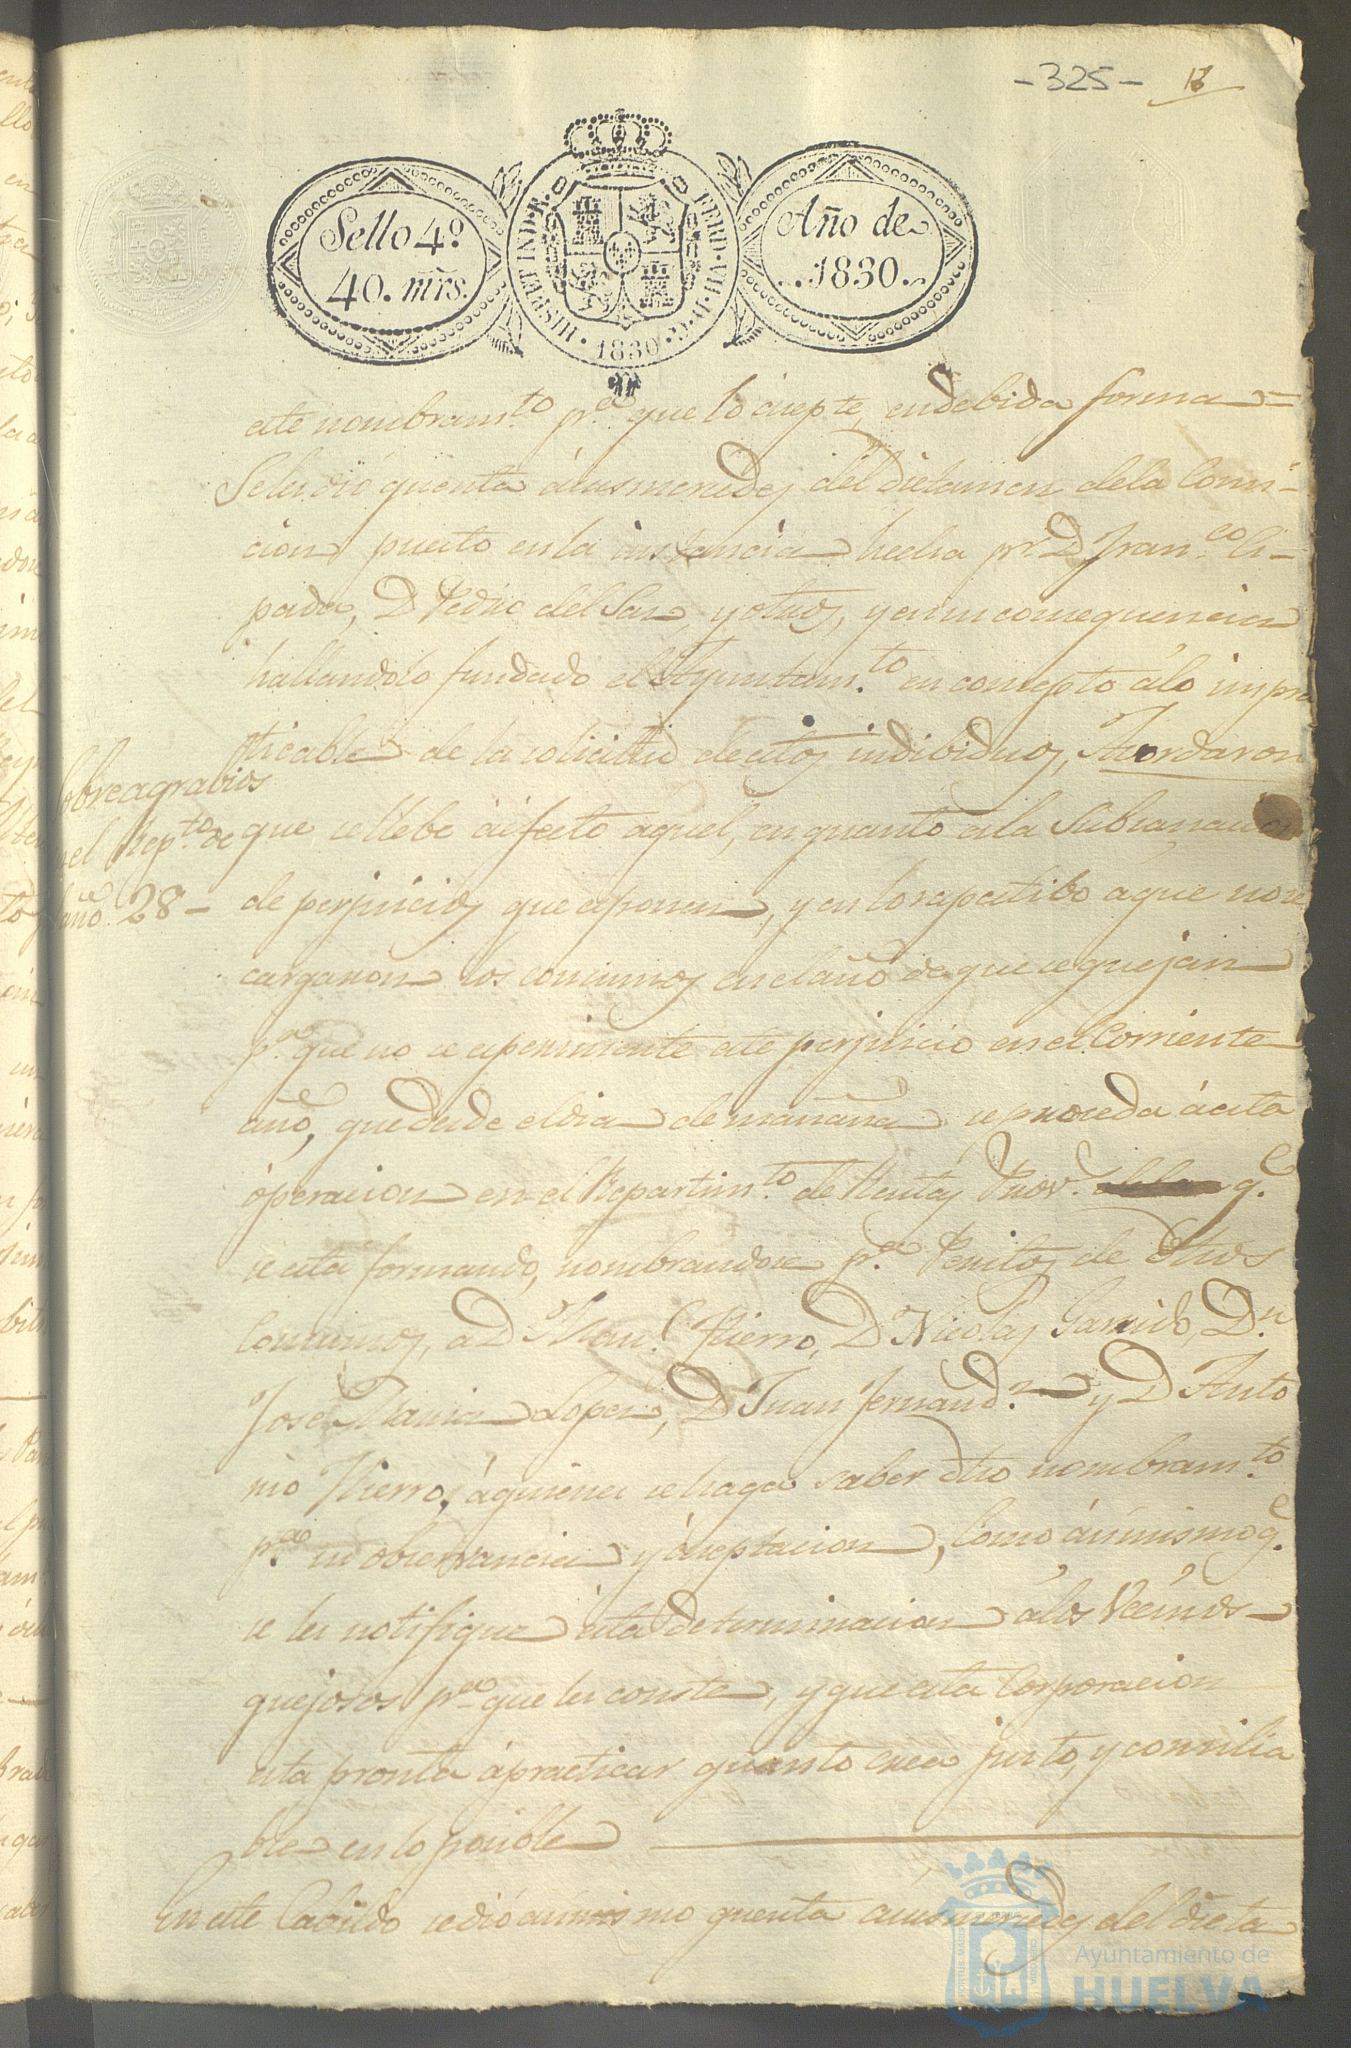 -325- 13
Sello 4º
40. mrs.
HISP. ET IND. R. FERD. VII. D. G. 1830
Año de
1830.
este nombramto. pa. que lo acepte, en debida forma =
Se les dió quenta á sus mercedes del Dictamen dela Comi-
cion puesto en la instancia hecha pr. D. Franco.
pada, D. Pedro del Saz, y otros, y en su consequencia
hallandolo fundado el Ayuntamto. en concepto á lo impra
ticable de la solicitud de estos individuos, Acordaron
Sobre agrabios
del Repto. de
año 28 -
que se llebe á efecto aquel, en quanto ala Subsanacion
de perjuicios que esponen, y en lo respectibo a que no se
cargaron los consumos en el año de que se quejan
pa. que no se esperimente este perjuicio en el Corriente
año, que desde el dia de mañana se proceda á esta
operacion en el Repartimto. de Rentas Prov.s qe.
se esta formando, nombrandose pr. Peritos de otros
Consumos, a D. Manl. Hierro, D. Nicolas Garrido, Dn.
José Maria Lopez, D. Juan Fernandz. y D. Anto
nio Hierro, á quienes se haga saber dho nombramto.
pa. su observancia y aceptacion, como ásimismo qe.
se les notifique esta determinacion á los Vecinos
quejosos pa. que les conste, y que esta Corporacion
esta pronta á practicar quanto crea justo, y consilia
ble en lo posible
En este Cabildo se dió asimismo quenta a sus mercedes del dicta
Ayuntamiento de
HUELVA